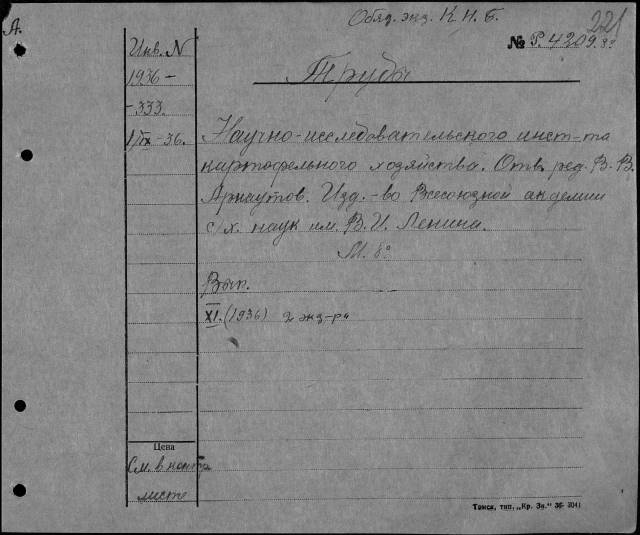 А.
Обяз. экз. К.Н.Б.
221
№ Р.4209.
Инв. N
1936 -
-333.
1/IX-36.
Труды
Научно-исследовательского инст-та
картофельного хозяйства. Отв. ред. В. В.
Арнаутов. Изд.-во Всесоюзной академии
с/х. наук им. В. И. Ленина.
М. 8°
Вып.
XI. (1936) 2 экз-ра
Цена
См. в контр
листе
Томск, тип. „Кр. Зн." 36-